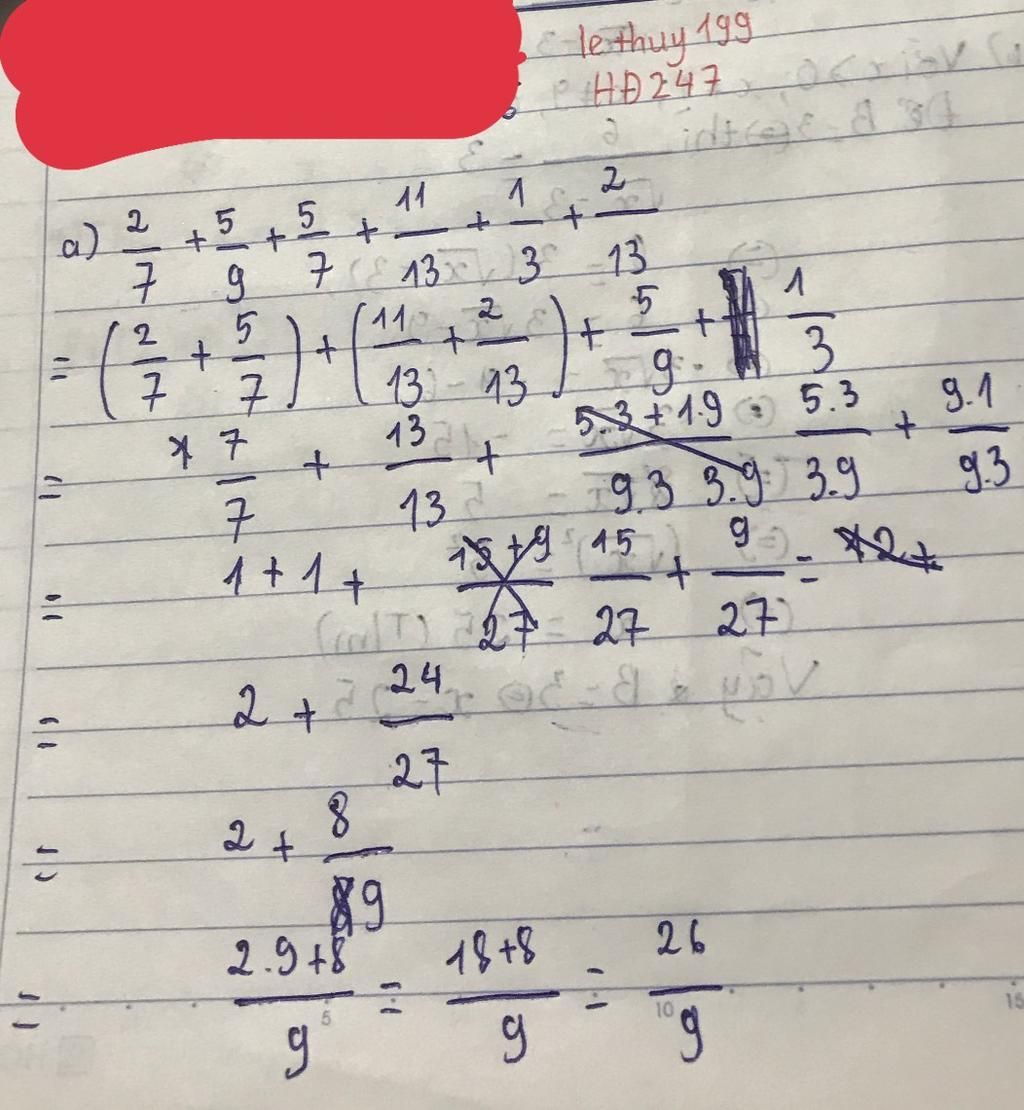 le thuy 199
HĐ247
a) 2/7 + 5/9 + 5/7 + 11/13 + 1/3 + 2/13
= (2/7 + 5/7) + (11/13 + 2/13) + 5/9 + 1/3
= 7/7 + 13/13 + 5.3/3.9 + 9.1/9.3
= 1 + 1 + 15/27 + 9/27 =
= 2 + 24/27
= 2 + 8/9
= 2.9+8/9 = 18+8/9 = 26/9